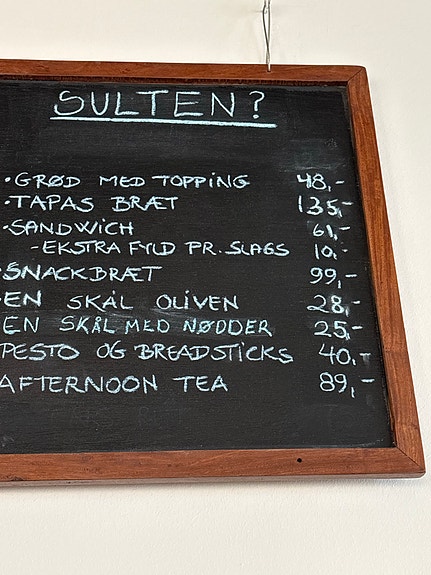 SULTEN?
·GRØD MED TOPPING 48,-
·TAPAS BRÆT 135,-
·SANDWICH 61,-
-EKSTRA FYLD PR. SLAGS 10,-
·SNACKBRÆT 99,-
·EN SKÅL OLIVEN 28,-
EN SKÅL MED NØDDER 25,-
PESTO OG BREADSTICKS 40,-
AFTERNOON TEA 89,-